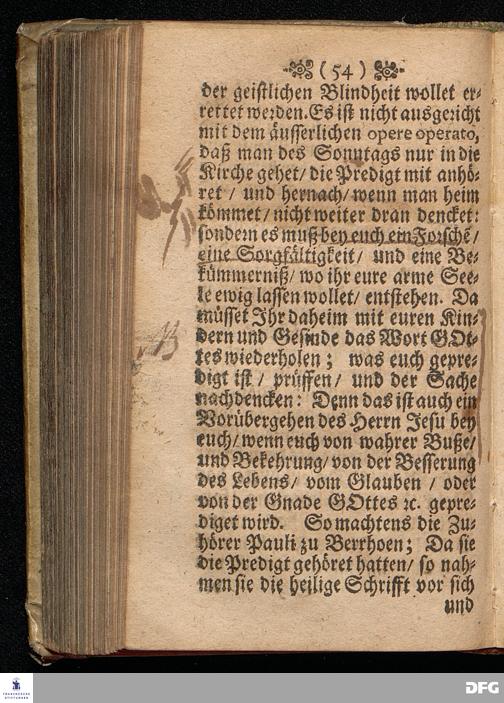 ( 54 )
der geistlichen Blindheit wollet er-
rettet werden. Es ist nicht ausgericht
mit dem äusserlichen opere operato,
daß man des Sonntags nur in die
Kirche gehet/ die Predigt mit anhö-
ret / und hernach/ wenn man heim
kömmet/ nicht weiter dran dencket:
sondern es muß bey euch ein Forschē/
eine Sorgfältigkeit/ und eine Be-
kümmerniß/ wo ihr eure arme See-
le ewig lassen wollet/ entstehen. Da
müsset Ihr daheim mit euren Kin-
dern und Gesinde das Wort GOt-
tes wiederholen; was euch gepre-
digt ist/ prüffen/ und der Sache
nachdencken: Denn das ist auch ein
Vorübergehen des Herrn Jesu bey
euch/ wenn euch von wahrer Busse/
und Bekehrung/ von der Besserung
des Lebens/ vom Glauben / oder
von der Gnade GOttes ꝛc. gepre-
diget wird. So machtens die Zu-
hörer Pauli zu Berrhoen; Da sie
die Predigt gehöret hatten/ so nah-
men sie die heilige Schrifft vor sich
und
NB
FRANCKESCHE
STIFTUNGEN
DFG